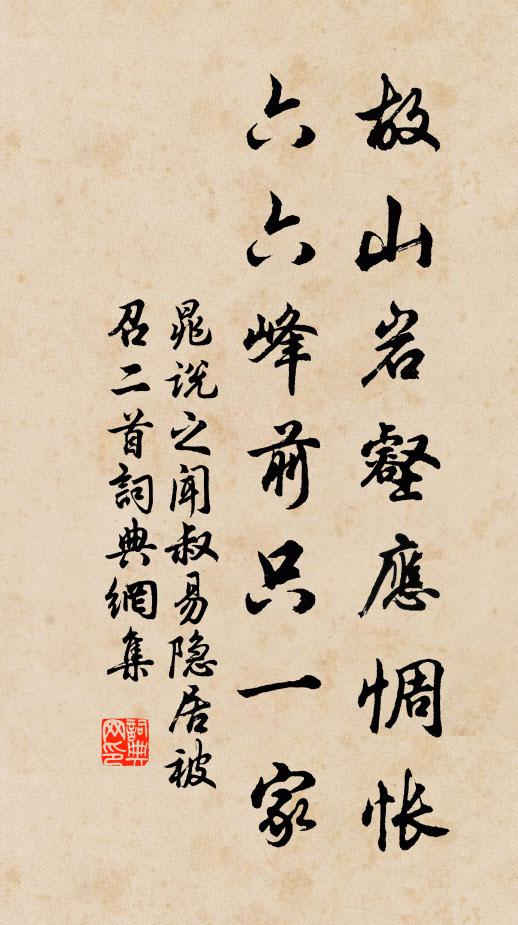 故山岩壑應惆怅
六六峰前只一家
晁说之闻叔易隐居被
召二首詞典網集
詞典
网印